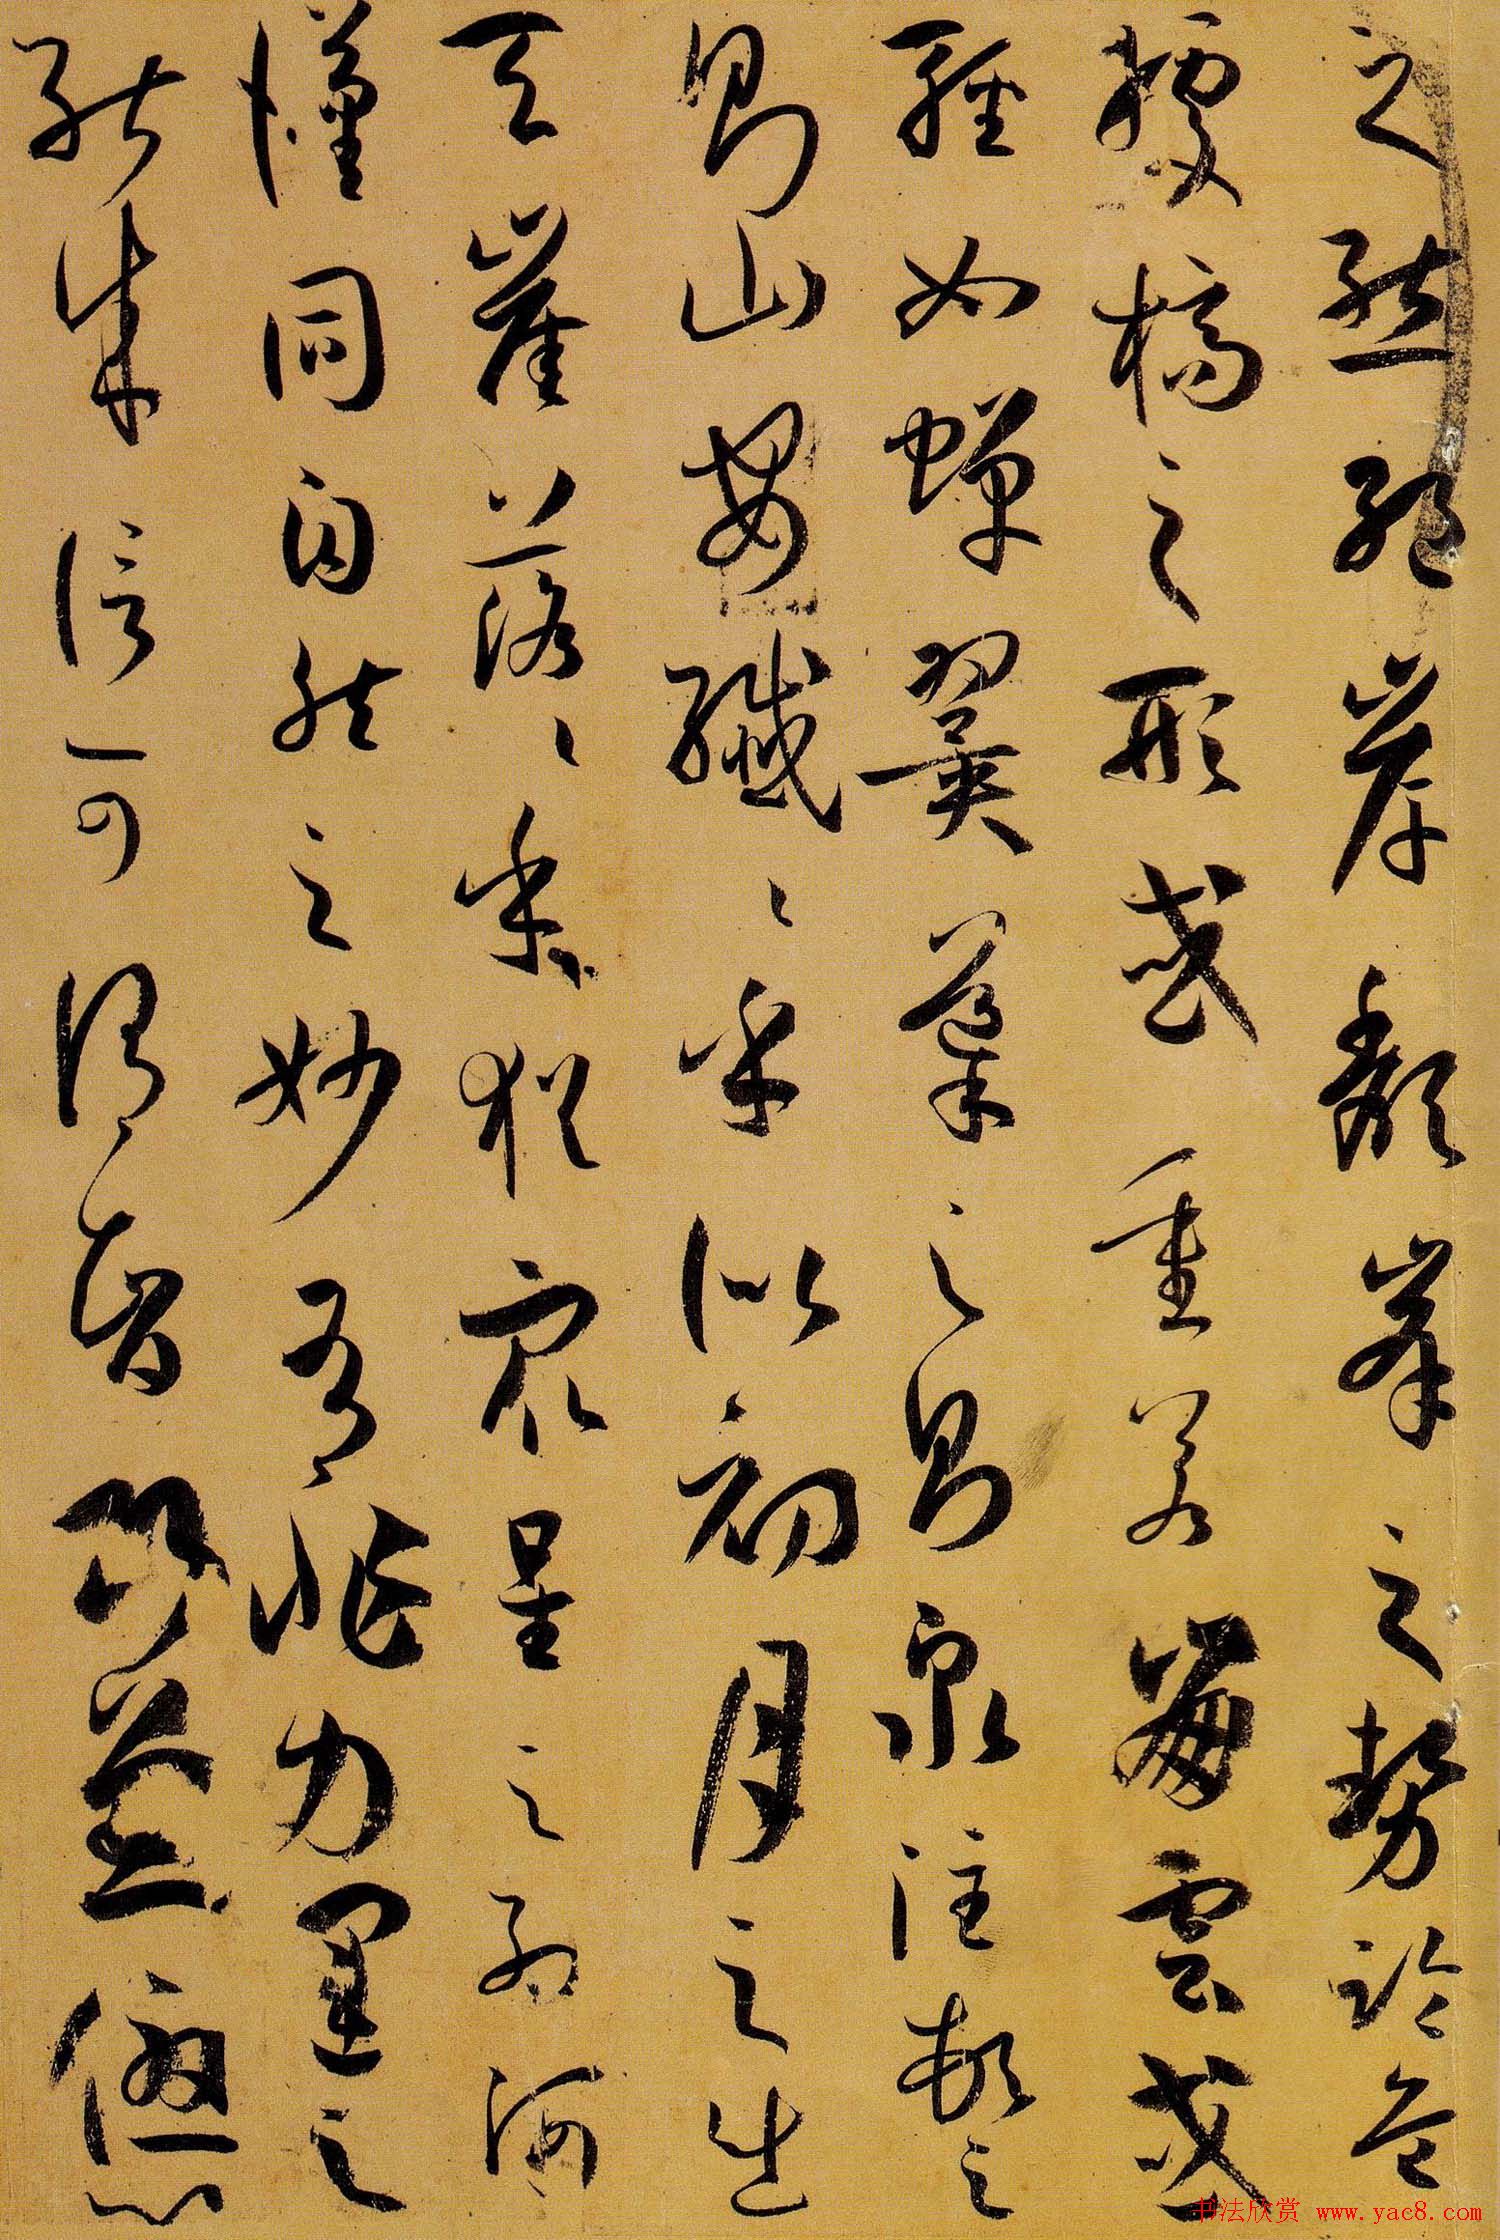 之態絕岸頹峯之勢臨危
據槁之形或重若崩雲或
輕如蟬翼導之則泉注頓之
則山安纖〻乎似初月之出
天崖落〻乎猶衆星之列河
漢同自然之妙有非力運之
能成信可謂智巧兼優心
书法欣赏 www.yac8.com